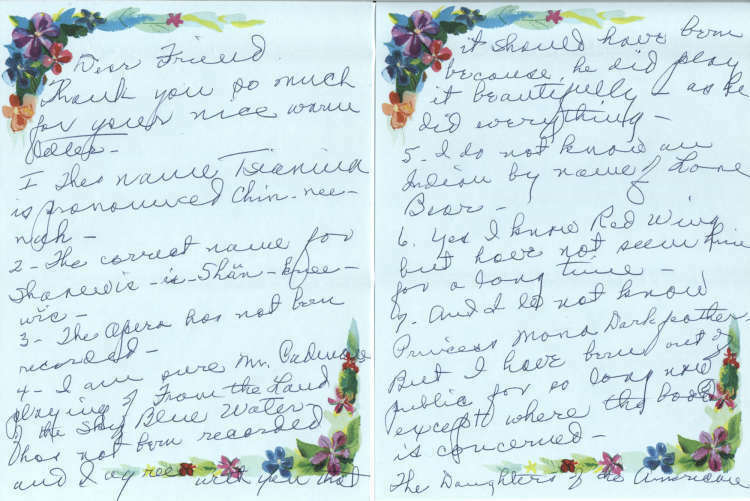 Dear Friend.
Thank you so much
for your nice warm
letter –
I The name Tsianina
is pronounced Chin-nee-
nah –
2 – The correct name for
Shanewis – is – Shän-knee-
wis –
3 – The Opera has not been
recorded –
4 – I am sure Mr. Cadman's
playing of From the Land
of the Sky Blue Water –
has not been recorded
and I agree with you that
it should have been
because he did play
it beautifully – as he
did everything –
5 – I do not know an
Indian by name of Lone
Bear –
6. Yes I know Red Wing
but have not seen him
for a long time –
7 – And I do not know
Princess Mona Darkfeather.
But I have been out of
public for so long now
except where the book
is concerned –
The Daughters of the American